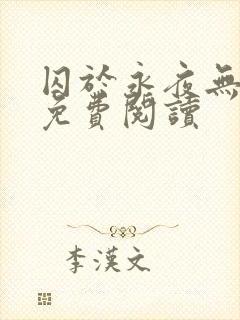 囚於永夜無
免費閱讀
李漢文